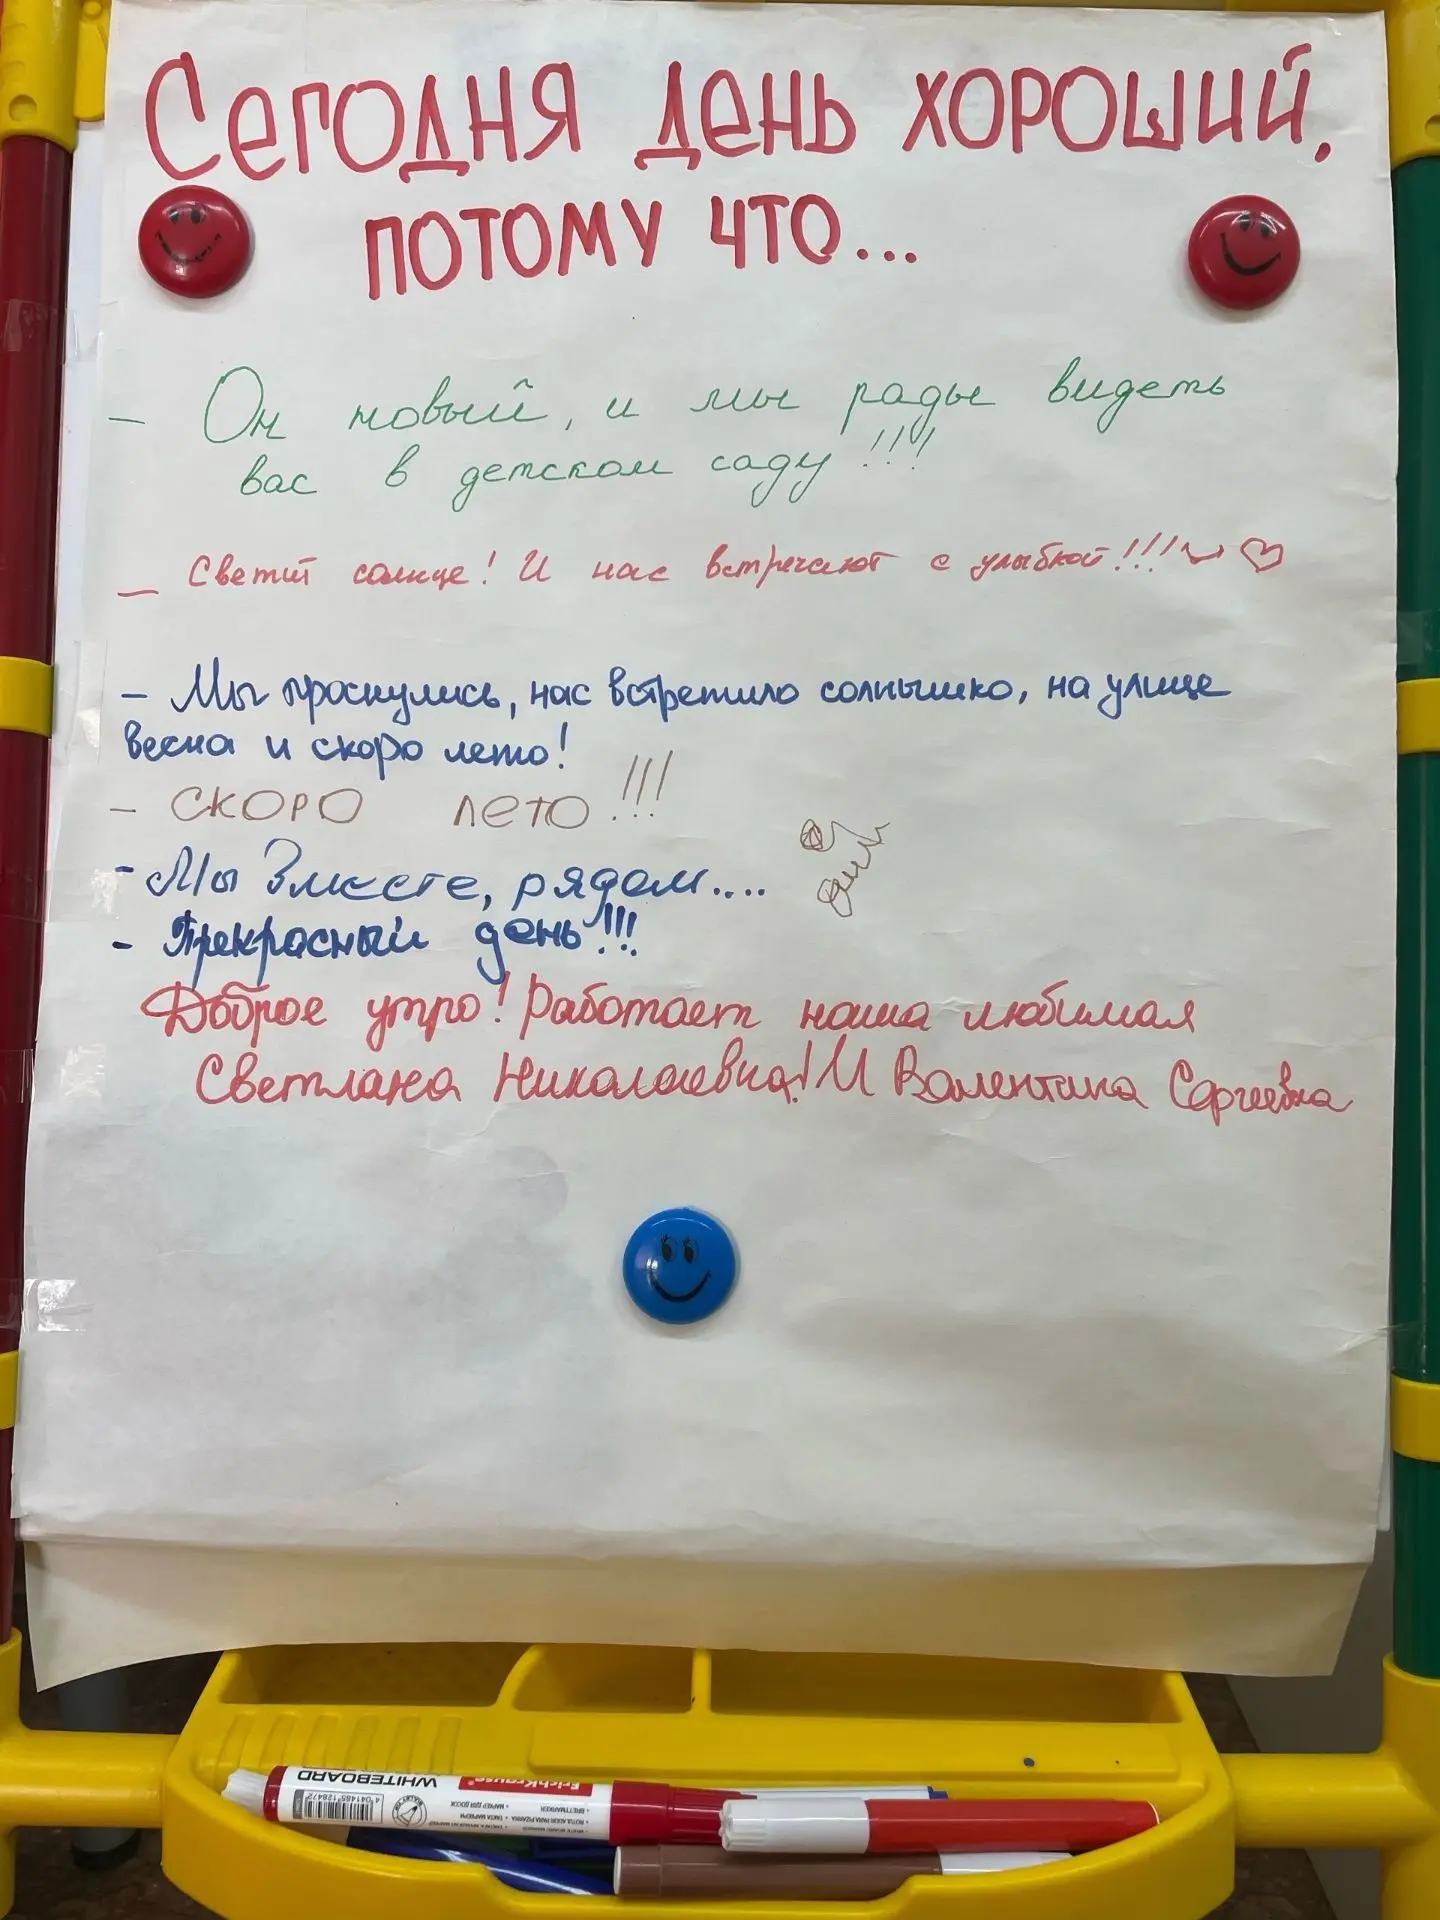 Сегодня день хороший,
потому что...
– Он новый, и мы рады видеть
вас в детском саду!!!
– Светит солнце! И нас встречают с улыбкой!!! ♡
– Мы проснулись, нас встретило солнышко, на улице
весна и скоро лето!
– СКОРО ЛЕТО!!!
- Мы Вместе, рядом....
- Прекрасный день!!!
Доброе утро! Работает наша любимая
Светлана Николаевна! И Валентина Сергеевна
WHITEBOARD
ErichKrause®
4 041485 128472